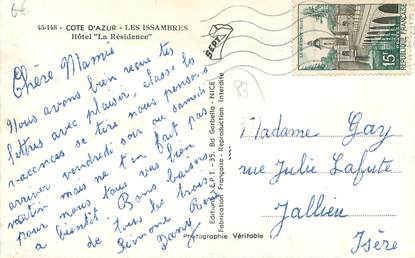 6€
45-148 - COTE D'AZUR - LES ISSAMBRES
Hôtel "La Résidence"
Chère Mamie
Nous avons bien reçue tes
lettres avec plaisir, classe les
vacances se tire nous pensons
arriver vendredi soir ou samedi
matin mais ne t'en fait pas
pour nous tous vas bien
a bientôt. Bons baisers
de tous les trois
Simone René
Dany
Editions E.P.T. - 35, Bd Gorbella - NICE
Fabrication Française - Reproduction Interdite
Photographie Véritable
83
SEPT.
15F
Madame Gay
rue Julie Lafute
Jallieu
Isère